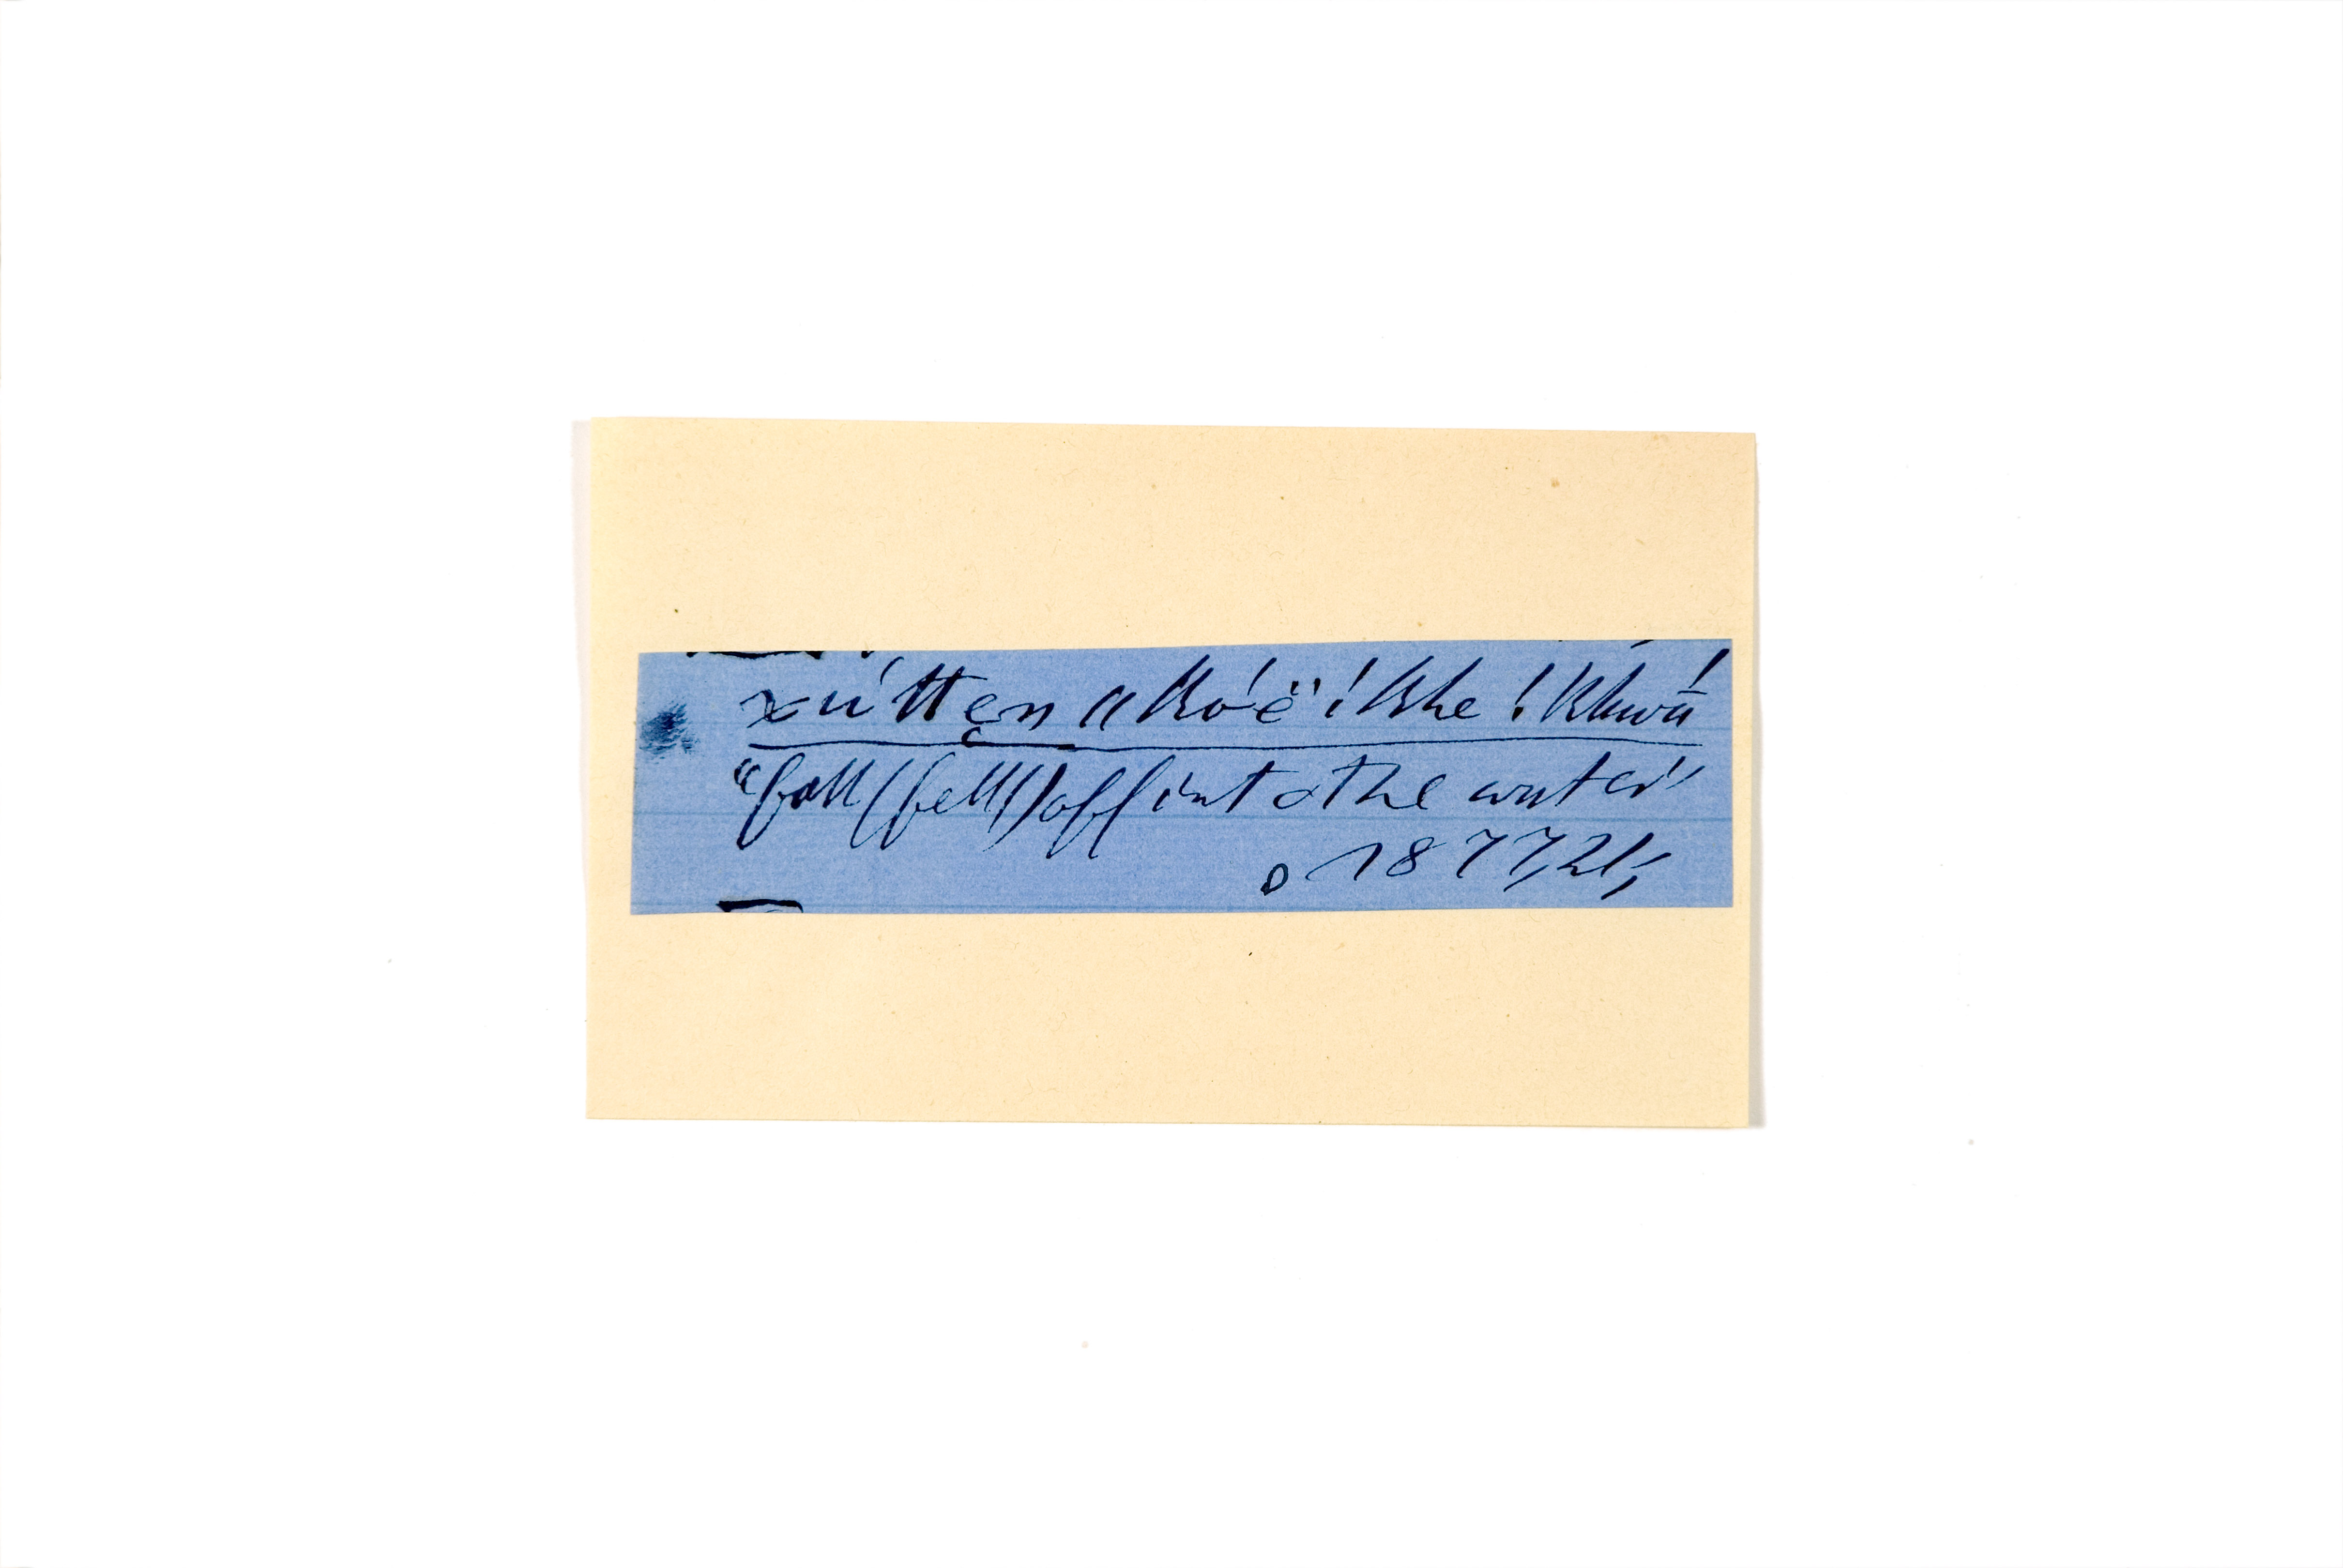 xu̍ttęn ǁkóë ǃkhe ǃkhwā́
"fall (fell) off into the water"
1877,21,